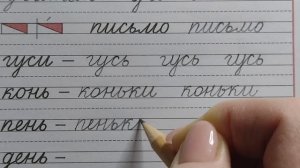 письмо письмо
гуси – гусь гусь гусь
конь – коньки коньки
пень – пеньк
день –